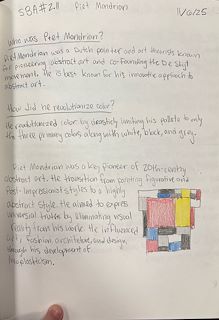 SBA#2.11 Piet Mondrian 11/6/25
Who was Piet Mondrian?
Piet Mondrian was a Dutch painter and art theorist known
for pioneering abstract art and co-founding the De Stijl
movement. He is best known for his innovative approach to
abstract art.
How did he revolutionize color?
He revolutionized color by drastically limiting his pallete to only
the three primary colors along with white, black, and grey.
Piet Mondrian was a key pioneer of 20th-century
abstract art. He transition from creating figurative and
Post-Impressional styles to a highly
abstract style. He aimed to express
universal truths by illuminating visual
reality from his work. He influenced
art, fashion, architecture, and design
through his development of
Neoplasticism.